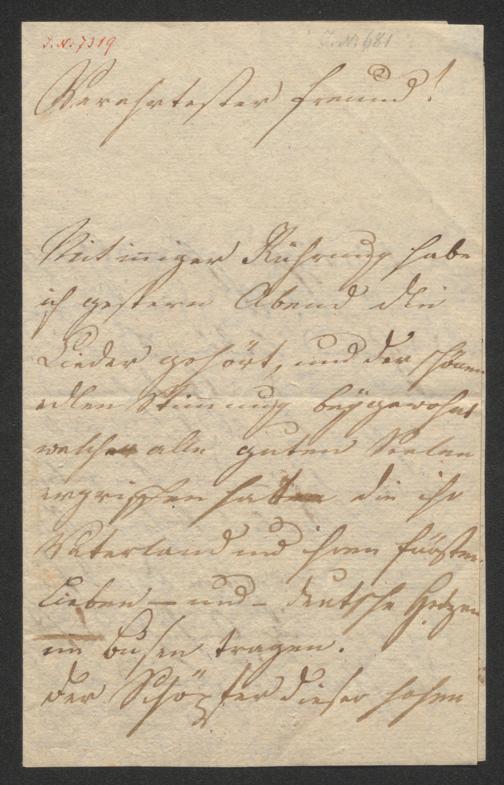 I.N. 7319
I.N. 681
Verehrtester Freund!
Mit inniger Rührung habe
ich gestern Abend die
Lieder gehört, und der schönen
edlen Stimmung beygewohnt
welche alle guten Seelen
ergriffen hatte die ihr
Vaterland und ihren Fürsten
Lieben – und – deutsche Herzen
im Busen tragen.
Der Schöpfer dieser hohen